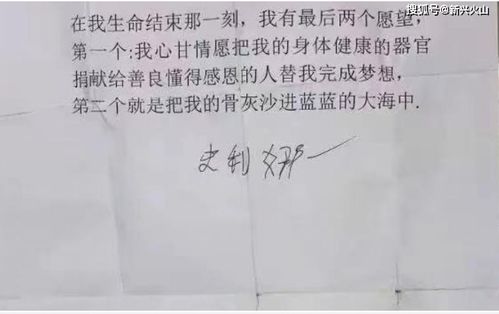 搜狐号@新兴火山
在我生命结束那一刻，我有最后两个愿望，
第一个:我心甘情愿把我的身体健康的器官
捐献给善良懂得感恩的人替我完成梦想，
第二个就是把我的骨灰沙进蓝蓝的大海中.
史利娜